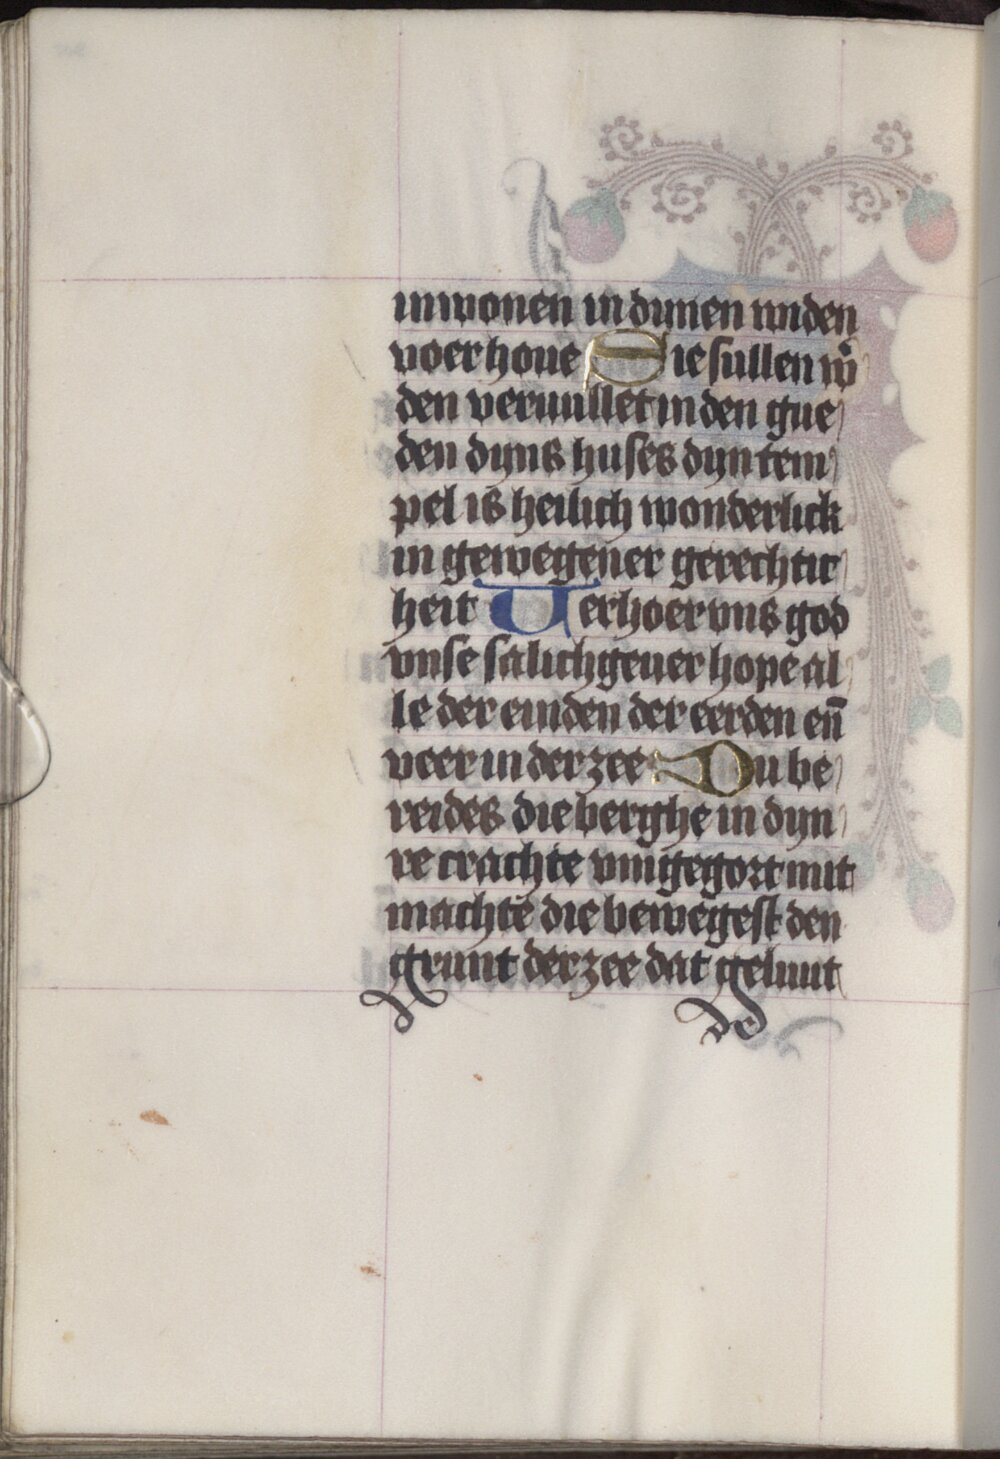 inwonen in dynen mnden
voerhoue Sie sullen w̄
den veruullet in den gue
den dyns huses dyn tem
pel is heilich wonderlick
in gewegener gerechtic
heit Verhoer vns god
vnse salichgeuer hope al
le der einden der eerden en̄
veer in der zee Du be
reides die berghe in dyn
re crachte vmgegort mit
machte die bewegest den
grunt der zee dat geluut
de